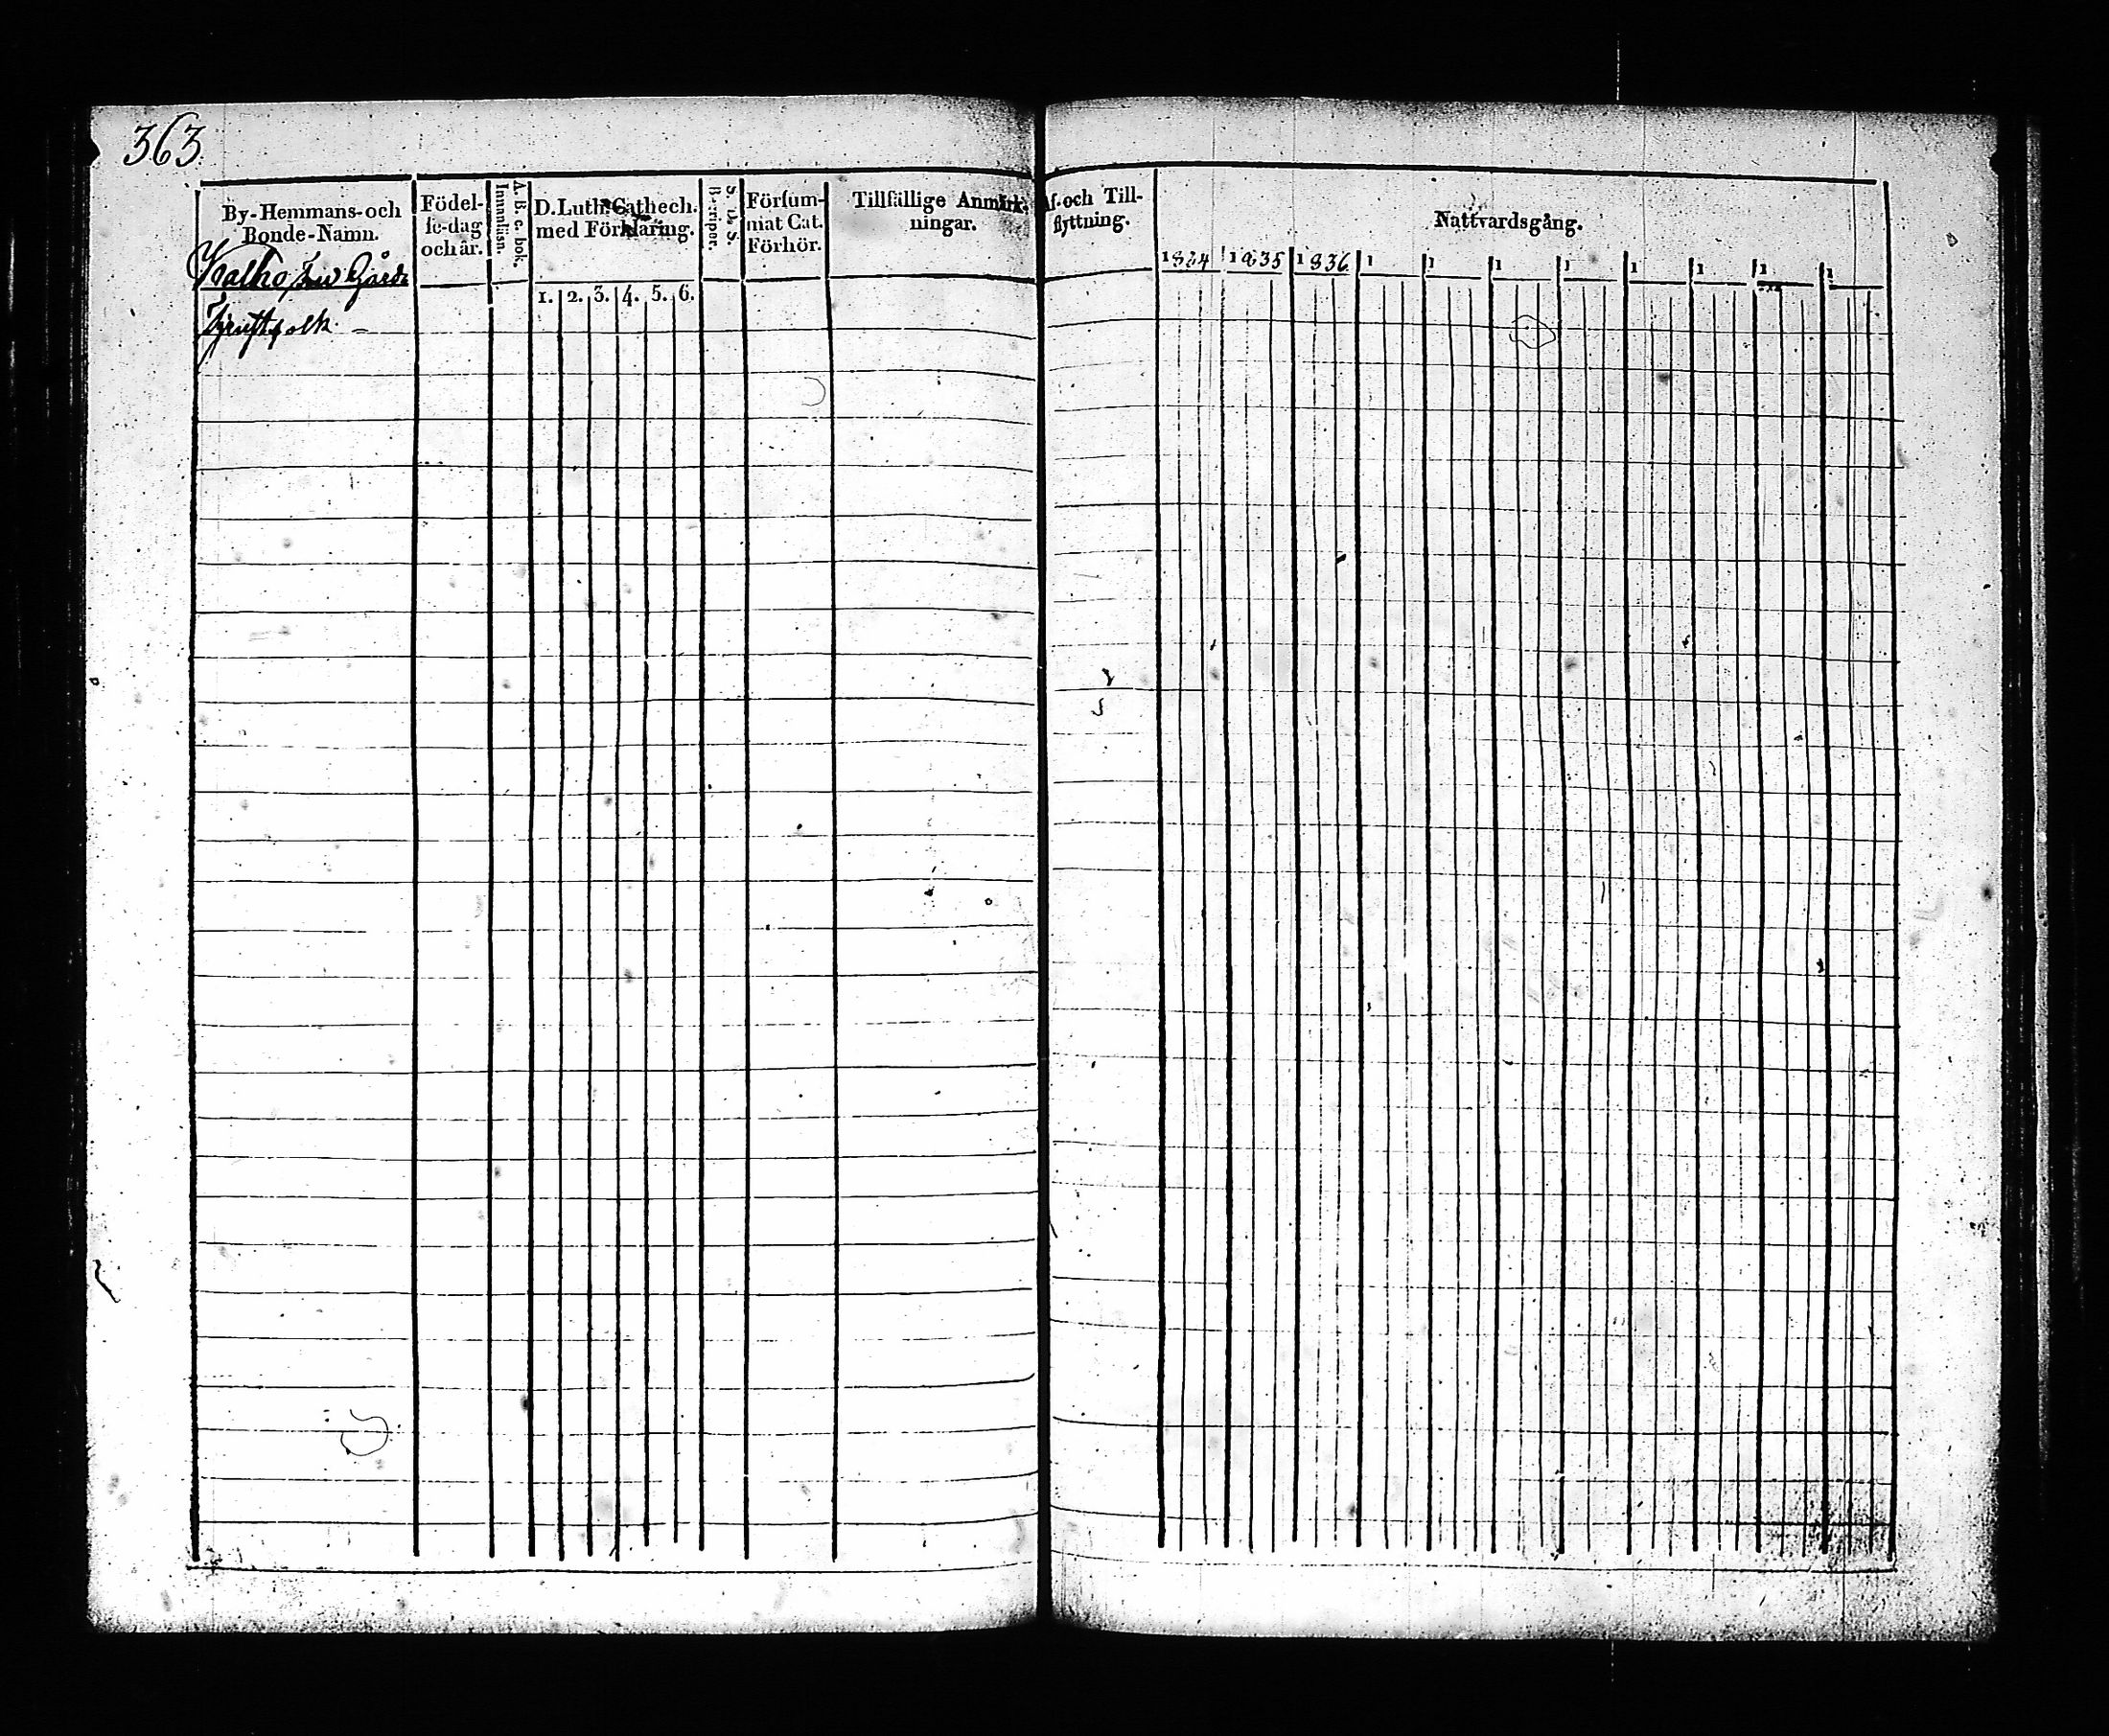 363.
By-Hemmans-och
Bonde-Namn.
Födel-
se-dag
och år.
A. B. c. bok.
Innanläsn.
D. Luth. Cathech.
med Förklaring.
1. 2. 3. 4. 5. 6.
Försum-
mat Cat.
Förhör.
Tillfällige Anmärk-
ningar.
Af- och Till-
flyttning.
Nattvardsgång.
1834 1835 1836 1 1 1 1 1 1 1 1
Kalho, Gård